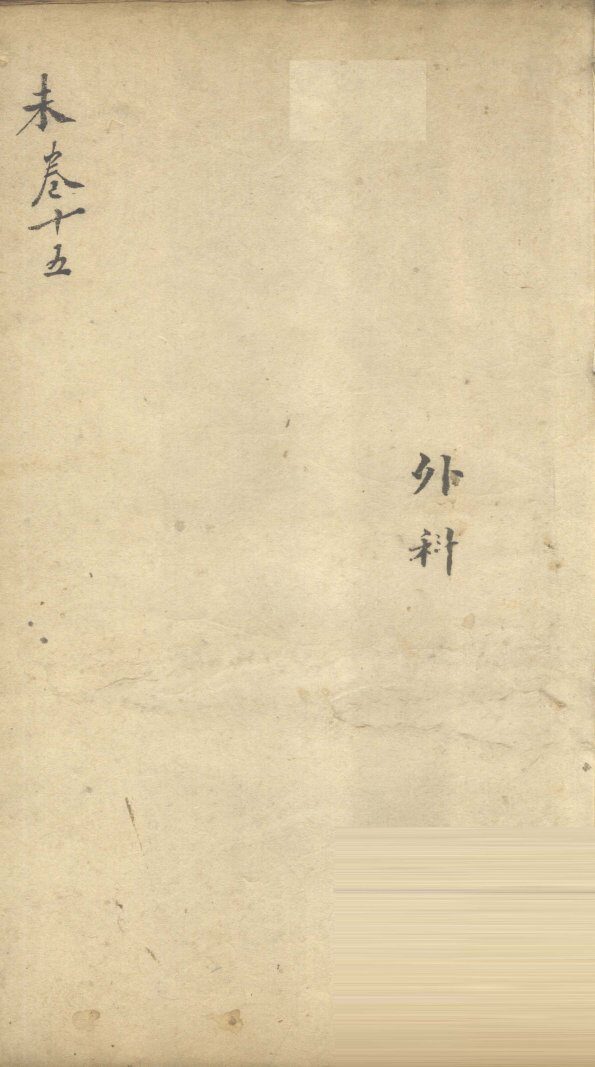 外科
未卷十五